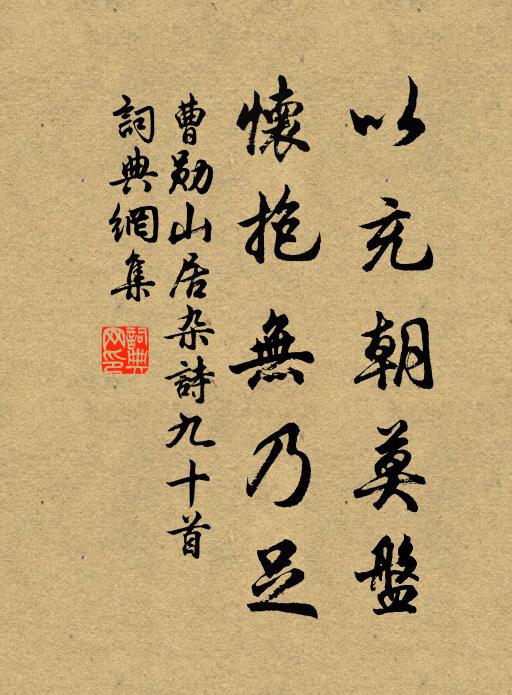 以充朝莫盤
懷抱無乃足
曹勋山居杂詩九十首
詞典網集
詞典網印